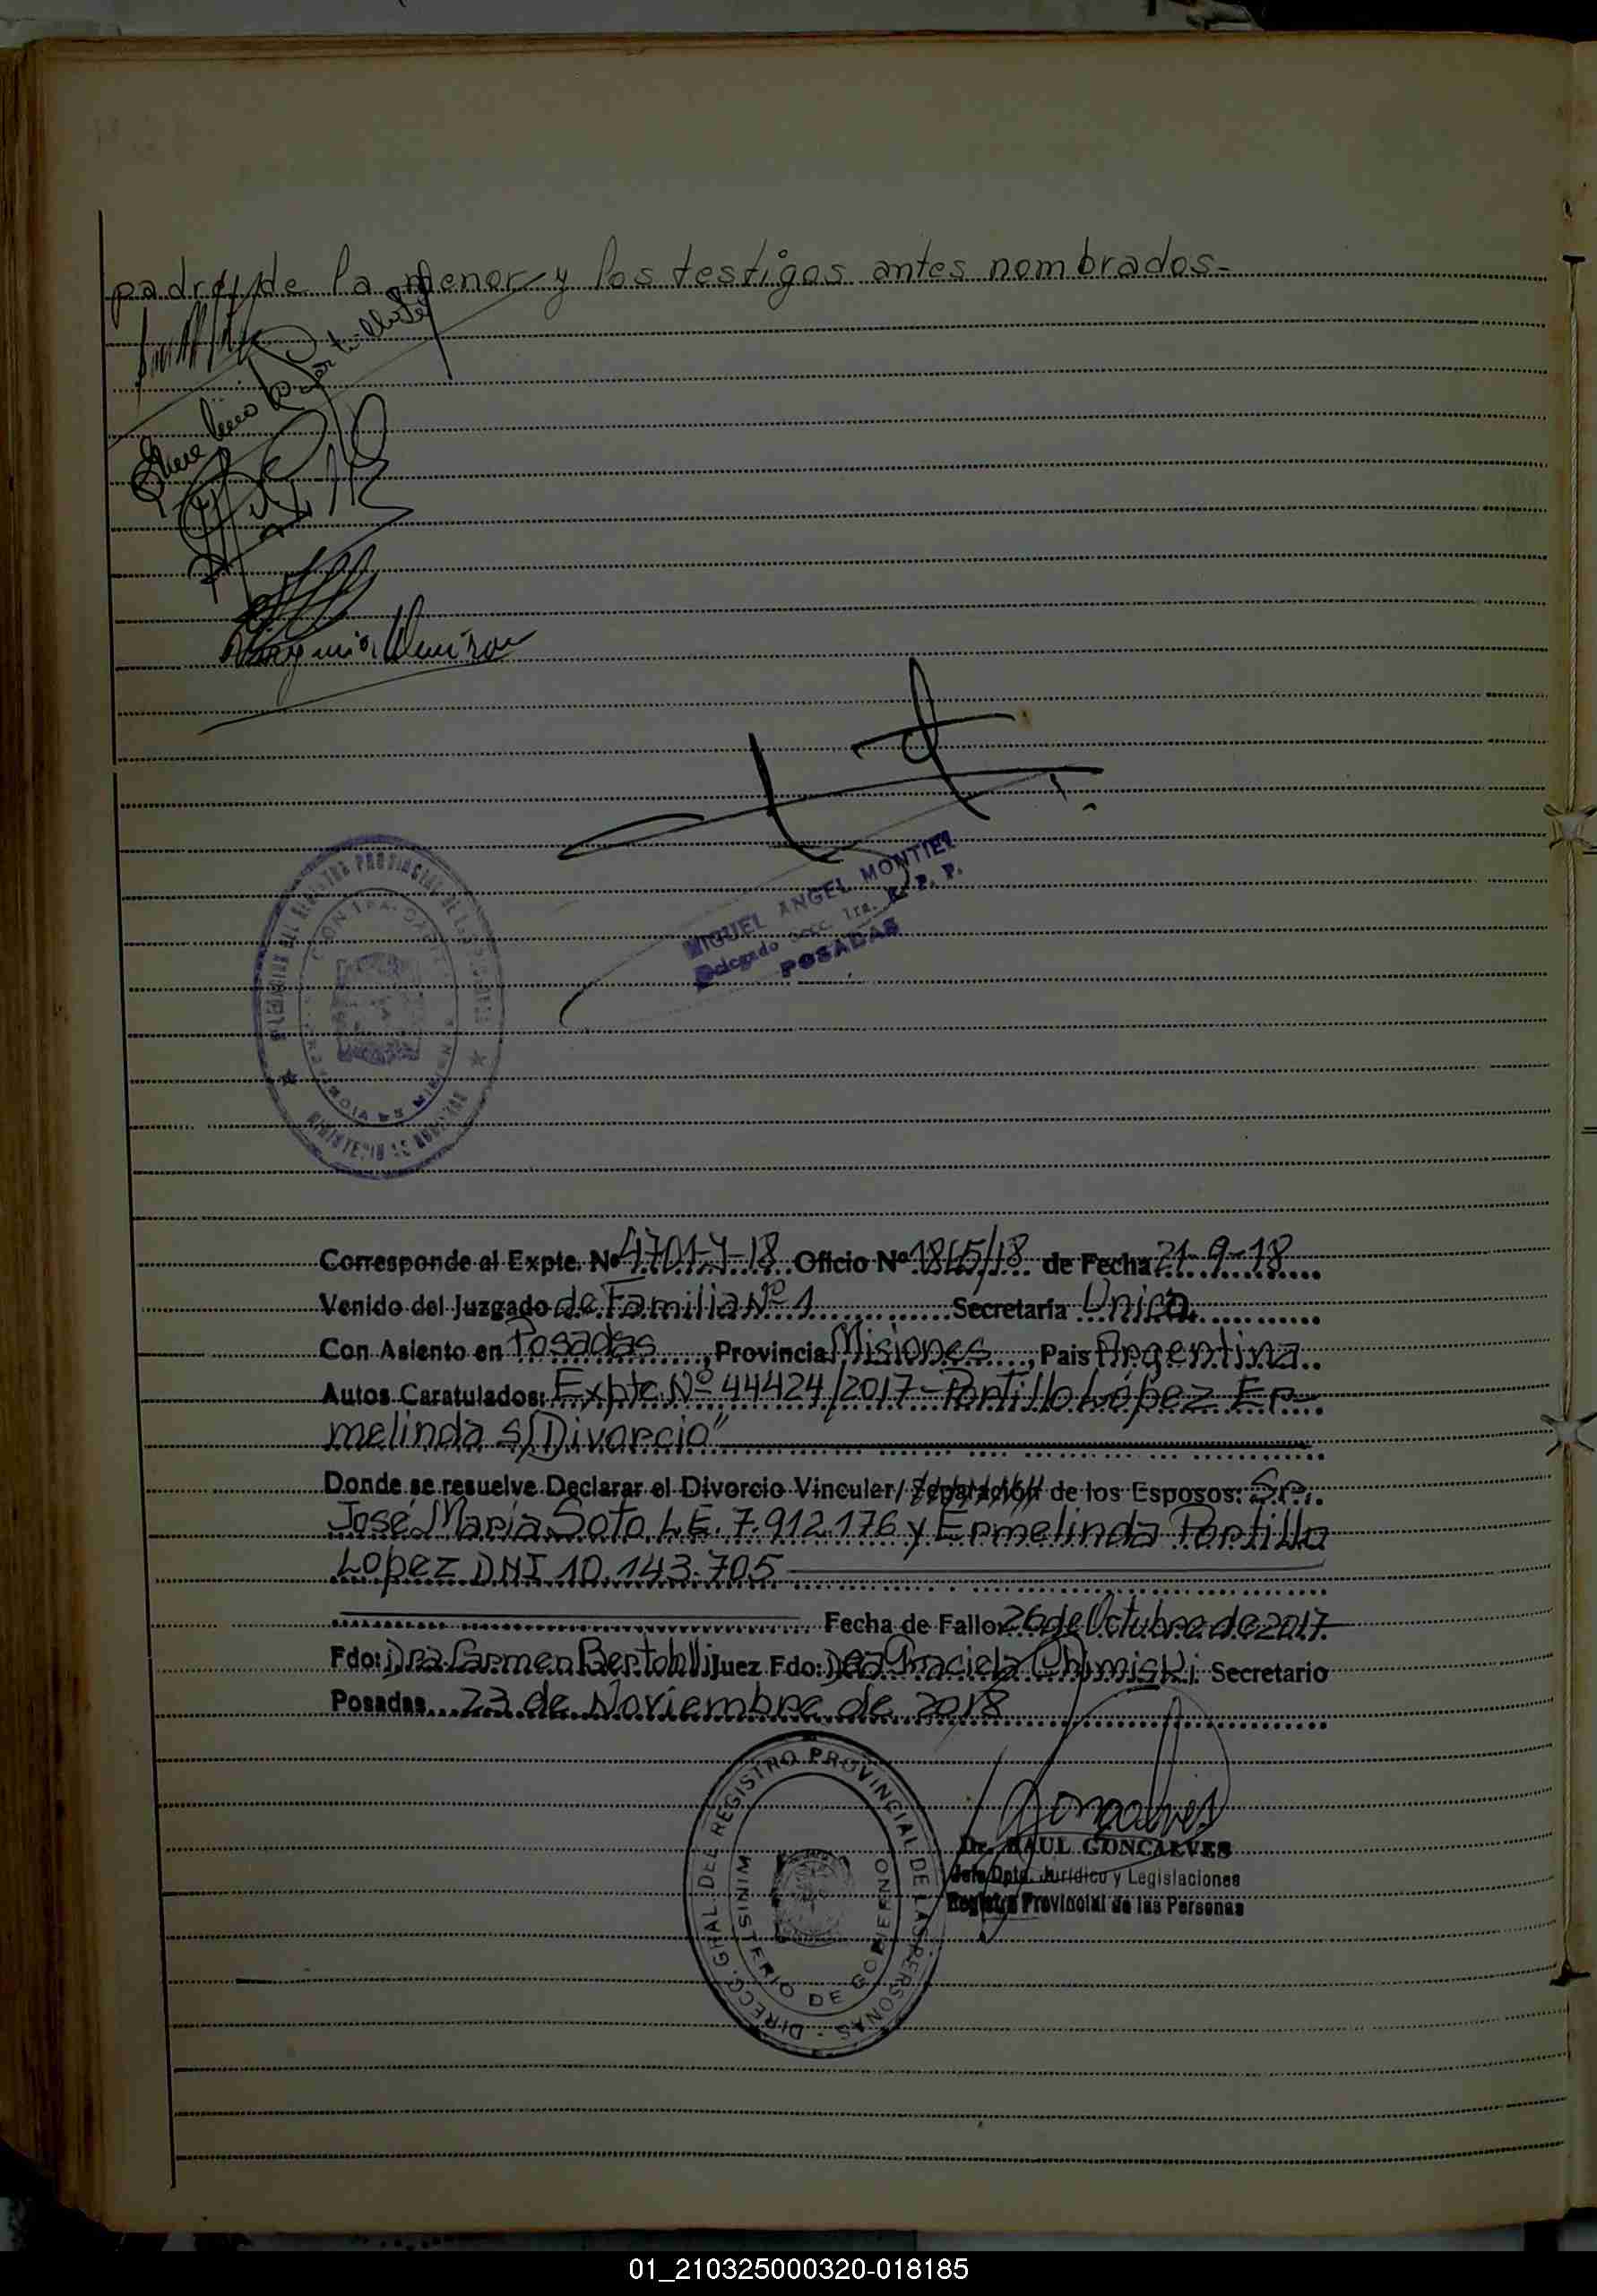 padre, de la menor y los testigos antes nombrados-
MIGUEL ANGEL MONTIEL
Delegado Secc. 1ra. R. P. P.
POSADAS
Corresponde al Expte. Nº 4701-Y-18 Oficio Nº 1865/18 de Fecha 21-9-18
Venido del Juzgado de Familia Nº 1 Secretaría Unica.
Con Asiento en Posadas, Provincia Misiones, Pais Argentina.
Autos Caratulados: Expte. Nº 44424/2017-Portillo López Er-
melinda s/Divorcio"
Donde se resuelve Declarar el Divorcio Vincular/Separación de los Esposos: Sr.
José María Soto L.E. 7.912.176 y Ermelinda Portillo
Lopez DNI 10.143.705
Fecha de Fallo: 26 de Octubre de 2017
Fdo: Dra Carmen Juez Fdo: Dra Graciela Secretario
Posadas, 23 de Noviembre de 2018
DIRECC. GRAL. DEL REGISTRO PROVINCIAL DE LAS PERSONAS
MINISTERIO DE GOBIERNO
Dr. RAUL GONCALVES
Jefe Dpto. Jurídico y Legislaciones
Registro Provincial de las Personas
01_210325000320-018185